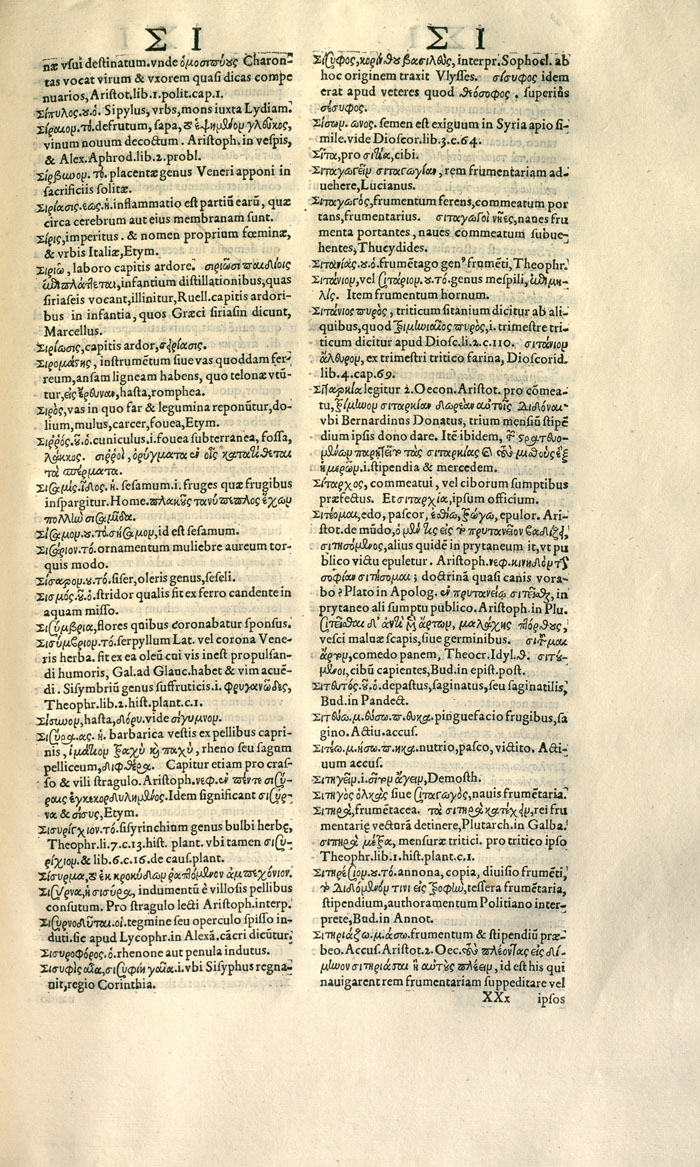 Σ Ι
næ vsui destinatum. vnde ὁμοσιπύους Charon-
tas vocat virum & vxorem quasi dicas compe
nuarios, Aristot.lib.1.polit.cap.1.
Σίπυλος.ȣ.ὁ. Sipylus, vrbs, mons iuxta Lydiam.
Σίραιον.τό.defrutum, sapa, γλυκύς,
vinum nouum decoctum. Aristoph. in vespis,
& Alex.Aphrod.lib.2.probl.
τό. placentæ genus Veneri apponi in
sacrificiis solitæ.
Σιρίασις.εως.ἡ.inflammatio est partiũ earũ, quæ
circa cerebrum aut eius membranam sunt.
Σίρις, imperitus. & nomen proprium fœminæ,
& vrbis Italiæ, Etym.
Σιριῶ, laboro capitis ardore. σιριῶσι παιδίοις
infantium distillationibus, quas
siriaseis vocant, illinitur, Ruell. capitis ardori-
bus in infantia, quos Græci siriasin dicunt,
Marcellus.
Σιρίωσις, capitis ardor,
Σιρομάστης, instrumẽtum siue vas quoddam fer-
reum, ansam ligneam habens, quo telonæ vtũ-
tur, εἰς ἔρευναν, hasta, romphea.
Σιρὸς, vas in quo far & legumina reponũtur, do-
lium, mulus, carcer, fouea, Etym.
Σιρρός.ȣ.ὁ.cuniculus, i. fouea subterranea, fossa,
λάκκος. σιρροὶ, ὀρύγματα ἐν οἷς κατατίθεται
τὰ σπέρματα.
Σισαμὶς.ίδος.ἡ. sesamum. i. fruges quæ frugibus
inspargitur. Home. τανύπεπλος ἔχων
Σίσαμον.ȣ.τό, id est sesamum.
τό. ornamentum muliebre aureum tor-
quis modo.
Σίσαρον.ȣ.τό. siser, oleris genus, seseli.
Σισμός.ȣ.ὁ.stridor qualis fit ex ferro candente in
aquam misso.
Σισύμβρια, flores quibus coronabatur sponsus.
Σισύμβριον.τό.serpyllum Lat. vel corona Vene-
ris herba. fit ex ea oleũ cui vis inest propulsan-
di humoris, Gal.ad Glauc.habet & vim acuẽ-
di. Sisymbriũ genus suffruticis .i. φρυγανῶδες,
Theophr.lib.2.hist.plant.c.1.
hasta, δόρυ. vide σίγυμνον.
Σισύρα.ας.ἡ. barbarica vestis ex pellibus capri-
nis, ἱμάτιον παχὺ, rheno seu sagum
pelliceum, διφθέρα. Capitur etiam pro cras-
so & vili stragulo. Aristoph. νεφ. ἐν πέντε σισύ-
ραις ἐγκεκορδυλημένος. Idem significant σισύρ-
να & σίσυς, Etym.
Σισυρίγχιον.τό.sisyrinchium genus bulbi herbę,
Theophr.li.7.c.13.hist. plant. vbi tamen σισυ-
ρίχιον. & lib.6.c.16.de caus.plant.
Σίσυρμα, ἐκ κροκύδων ἀμπεχόνιον.
Σισύρνα, ἢ σισύρα, indumentũ è villosis pellibus
consutum. Pro stragulo lecti Aristoph.interp.
Σισυρνοδῦται.οἱ.tegmine seu operculo spisso in-
duti. sic apud Lycophr.in Alexã.cãcri dicũtur.
Σισυροφόρος.ὁ.rhenone aut penula indutus.
.i.vbi Sisyphus regna-
uit, regio Corinthia.
Σ Ι
Σίσυφος, κορίνθου βασιλεὺς, interpr.Sophocl. ab
hoc originem traxit Vlysses. σίσυφος idem
erat apud veteres quod θεόσοφος. superiùs
σέσυφος.
Σίσων. ωνος. semen est exiguum in Syria apio si-
mile. vide Dioscor.lib.3.c.64.
Σῖτα, pro σιτία, cibi.
Σιταγωγεῖν σιταγωγίαν, rem frumentariam ad-
uehere, Lucianus.
Σιταγωγὸς, frumentum ferens, commeatum por
tans, frumentarius. σιταγωγοὶ νῆες, naues fru
menta portantes, naues commeatum subue-
hentes, Thucydides.
Σιτανίας.ȣ.ὁ.frumẽtago genꝰ frumẽti, Theophr.
Σιτάνιον, vel σιτάριον.ȣ.τό.genus mespili, ἐπιμη-
λίς. Item frumentum hornum.
Σιτάνιος πυρὸς, triticum sitanium dicitur ab ali-
quibus, quod πυρὸς, i. trimestre tri-
ticum dicitur apud Diosc.li.2.c.110. σιτάνιον
ἄλευρον, ex trimestri tritico farina, Dioscorid.
lib.4.cap.69.
Σιταρκία legitur 2.Oecon.Aristot. pro cõmea-
tu, σιταρκίαν δωρεὰν αὐτοῖς διδόναι
vbi Bernardinus Donatus, trium mensiũ stipẽ
dium ipsis dono dare. Itẽ ibidem,
τὰς σιταρκίας τοὺς μισθοὺς ἐξ
ἡμερῶν.i.stipendia & mercedem.
Σίταρχος, commeatui, vel ciborum sumptibus
præfectus. Et σιταρχία, ipsum officium.
Σιτέομαι, edo, pascor, epulor. Ari-
stot.de mũdo, εἰς τὸ πρυτανεῖον
σιτησόμενος, alius quidẽ in prytaneum it, vt pu
blico victu epuletur. Aristoph.νεφ.
σοφίαν σιτήσομαι; doctrinã quasi canis vora-
bo? Plato in Apolog. ἐν πρυτανείῳ σιτεῖσθαι, in
prytaneo ali sumptu publico. Aristoph.in Plu.
σιτεῖσθαι δ' ἀντὶ ἄρτων, μαλάχης πτόρθους,
vesci maluæ scapis, siue germinibus.
comedo panem, Theocr.Idyl.θ. σιτού-
μενοι, cibũ capientes, Bud.in epist.post.
Σιτευτός.ȣ.ὁ.depastus, saginatus, seu saginatilis,
Bud.in Pandect.
Σιτεύω.μ.εύσω.π.ευκα.pinguefacio frugibus, sa
gino. Actiu.accus.
Σιτέω.μ.ήσω.π.ηκα.nutrio, pasco, victito. Acti-
uum accus.
Σιτηγεῖν.i.σῖτον ἄγειν, Demosth.
Σιτηγὸς ὁλκὰς siue σιταγωγὸς, nauis frumẽtaria.
Σιτηρὰ, frumẽtacea. τὰ σιτηρὰ κατέχειν, rei fru
mentariæ vecturã detinere, Plutarch.in Galba.
σιτηρὰ μέτρα, mensuræ tritici. pro tritico ipso
Theophr.lib.1.hist.plant.c.1.
Σιτηρέσιον.ȣ.τό.annona, copia, diuisio frumẽti,
τὸ διδόμενόν τινι εἰς τροφὴν, tessera frumẽtaria,
stipendium, authoramentum Politiano inter-
prete, Bud.in Annot.
Σιτηριάζω.μ.άσω.frumentum & stipendiũ præ-
beo. Accus. Aristot.2.Oec. τοὺς πλέοντας εἰς
σιτηριάσαι ἢ αὐτοὺς πλέειν, id est his qui
nauigarent rem frumentariam suppeditare vel
XXx ipsos